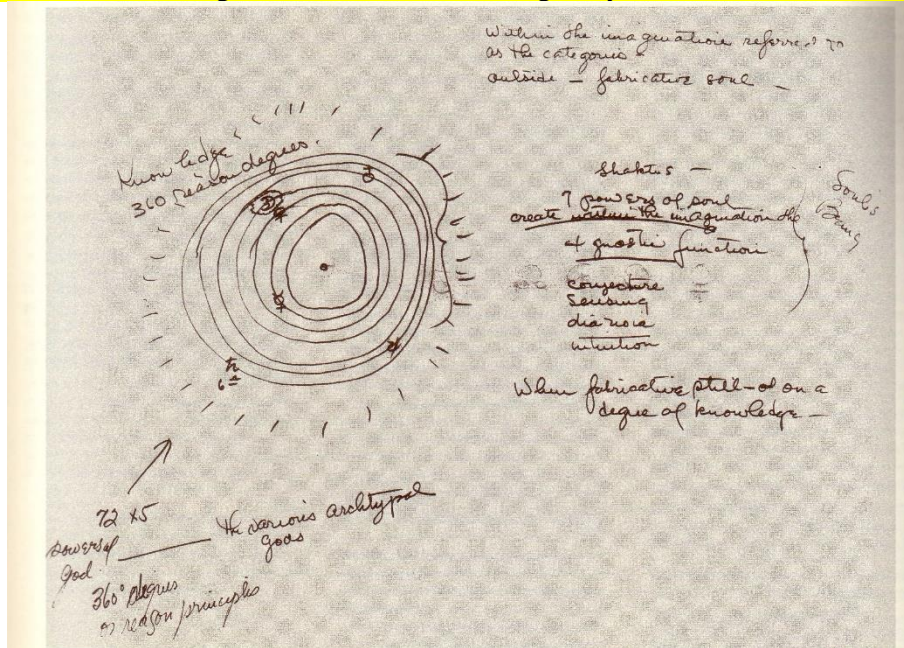 Within the imagination referred to
as the categories -
outside - fabricative soul -
Knowledge
360 reason degrees.
Shaktis -
7 powers of soul
create within the imagination the
4 gnostic function
conjecture
Sensing
dianoia
intuition
Soul's
Being
When fabricative still - on a
degree of knowledge -
♄
6♎
72 x5
powers of
God
the various archtypal
gods
360° degrees
or reason principles